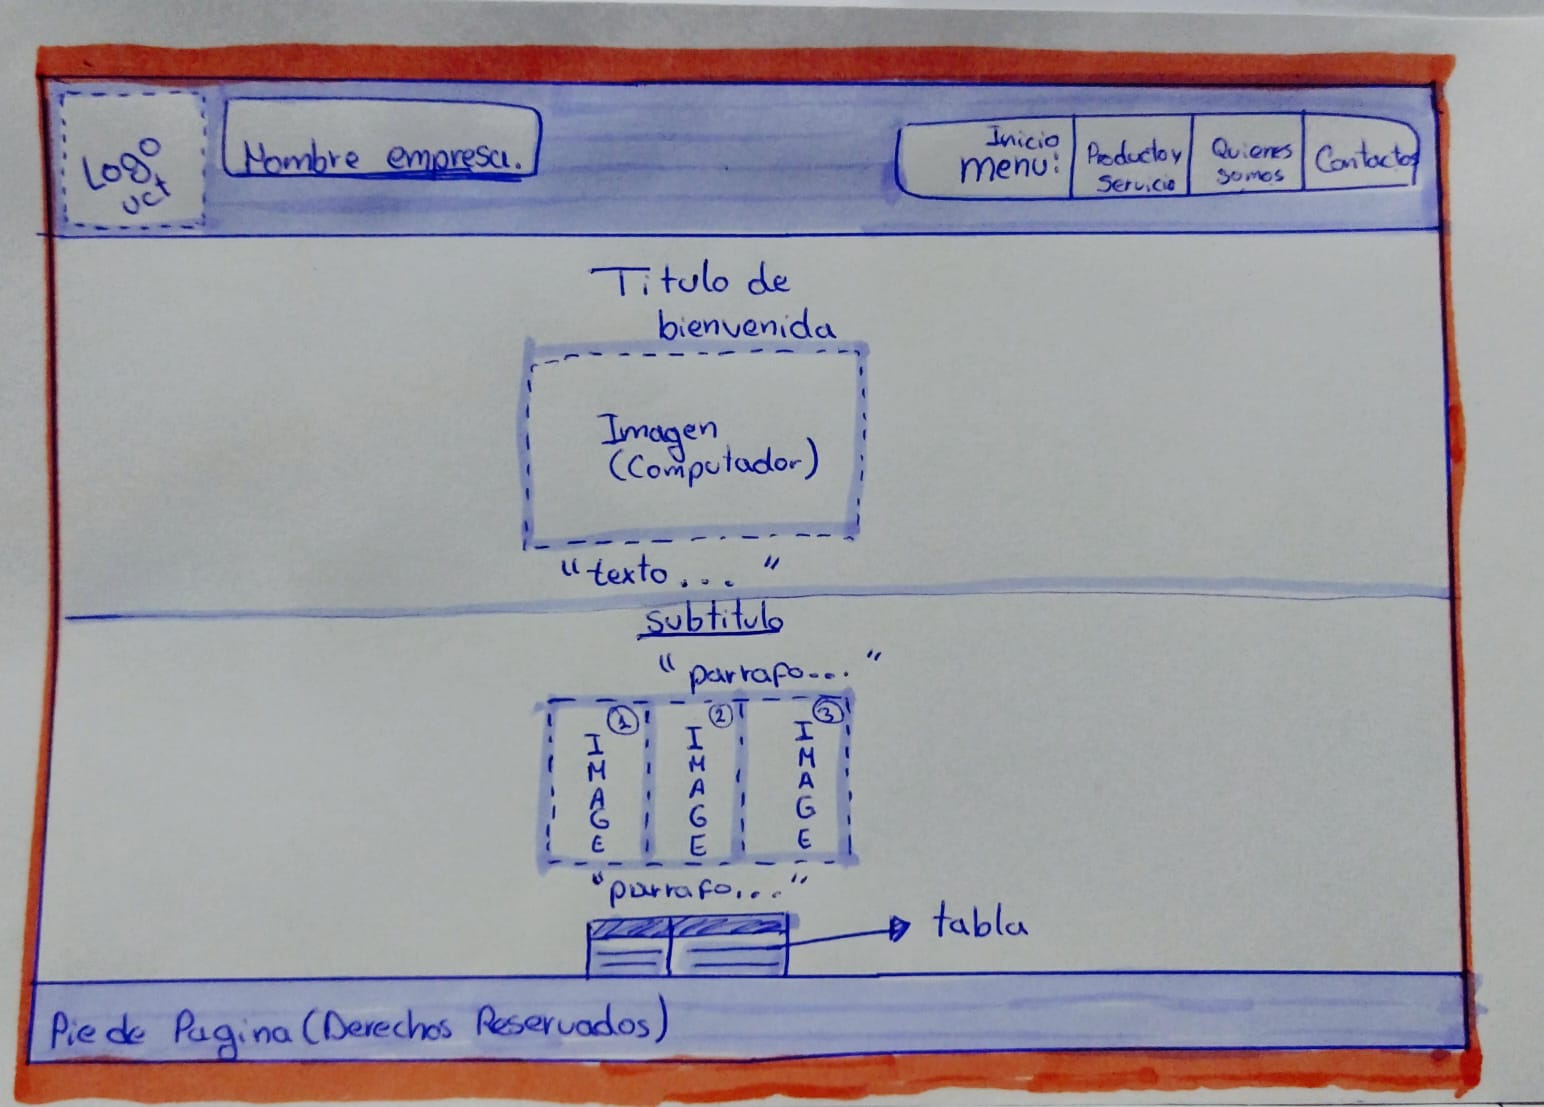 Logo
uct
Nombre empresa.
Inicio
menu:
Producto y
Servicio
Quienes
somos
Contactos
Titulo de
bienvenida
Imagen
(Computador)
"texto... "
subtitulo
"parrafo... "
1
IMAGE
2
IMAGE
3
IMAGE
"parrafo..."
tabla
Pie de Pagina (Derechos Reservados)